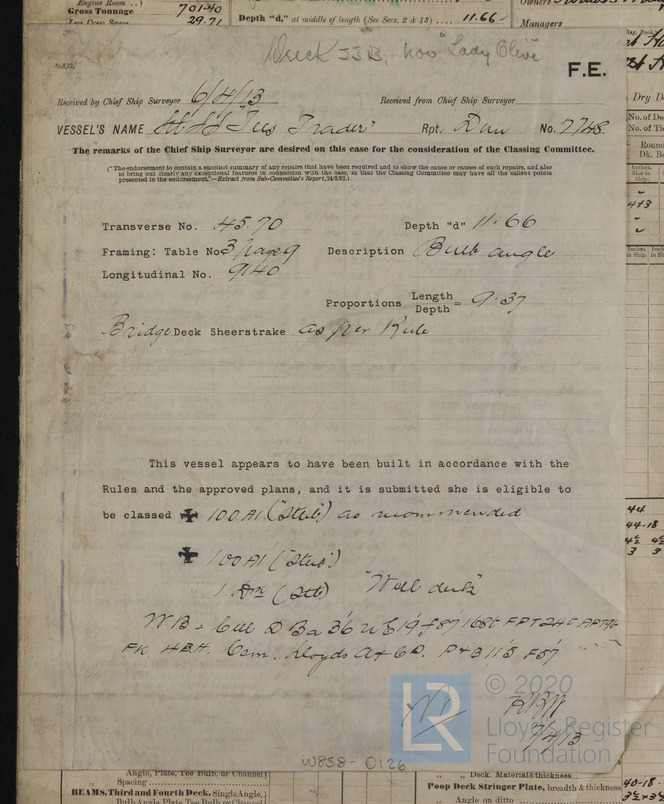 Engine Room
Gross Tonnage 701.40
29.71
Depth "d," at middle of length (See Secs. 2 & 13) .... 11.66
Owners
Managers
now "Lady Olive"
F.E.
Received by Chief Ship Surveyor 6/4/13 Received from Chief Ship Surveyor
VESSEL'S NAME "Tees Trader" Rpt. Dun No. 7748
The remarks of the Chief Ship Surveyor are desired on this case for the consideration of the Classing Committee.
("The endorsement to contain a succinct summary of any repairs that have been required and to show the cause or causes of such repairs, and also
to bring out clearly any exceptional features in connection with the case, so that the Classing Committee may have all the salient points
presented in the endorsement."—Extract from Sub-Committee's Report, 24/3/92.)
Transverse No. 45.70 Depth "d" 11.66
Framing: Table No. 3 page 9 Description Bulb angle
Longitudinal No. 9140
Proportions Length/Depth = 9.37
Bridge Deck Sheerstrake as per Rule
This vessel appears to have been built in accordance with the
Rules and the approved plans, and it is submitted she is eligible to
be classed ✠ 100A1 ("Steel") as recommended
✠ 100A1 (Steel)
1 Dk (Stl) "Well deck"
WB = Cell D B a 36' u E 19' f 87' 168t FPT 24t APT
FK 4BH. Cem. Lloyds A & C P. P+B 115' F 57'
7/4/13
© 2020
Lloyd's Register
Foundation
LR
W858-0126
Angle, Plate, Tee Bulb, or Channel
Spacing
BEAMS, Third and Fourth Deck, Single Angle,
Bulb Angle, Plate, Tee Bulb, or Channel
" " Deck. Material & thickness
Poop Deck Stringer Plate, breadth & thickness
Angle on ditto
40-18
Dry D
No. of Do
No. of Tie
Round
Dk. Be
44
44-18
3 3